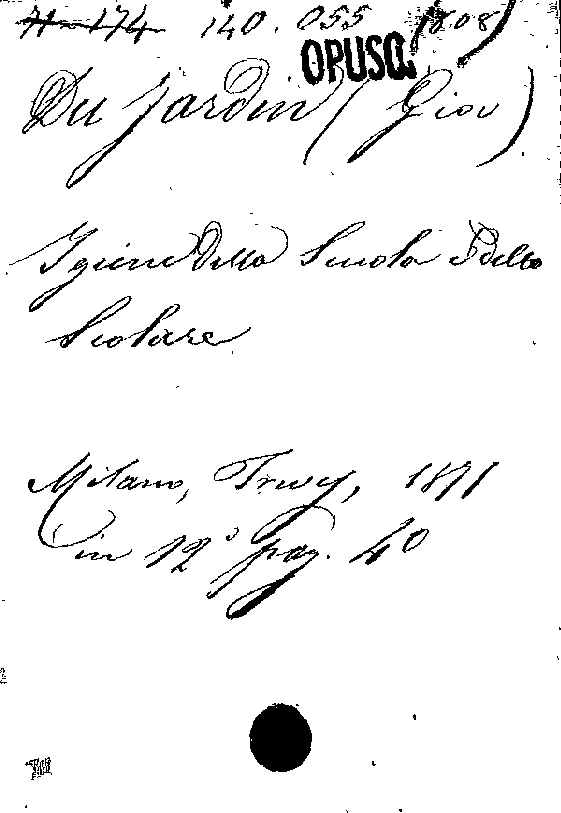 71-174 140.055 (808)
OPUSC.
Du Jardin (Giov)
Igiene della Scuola e dello
Scolare
Milano, Trevy, 1871
in 12° pag. 40